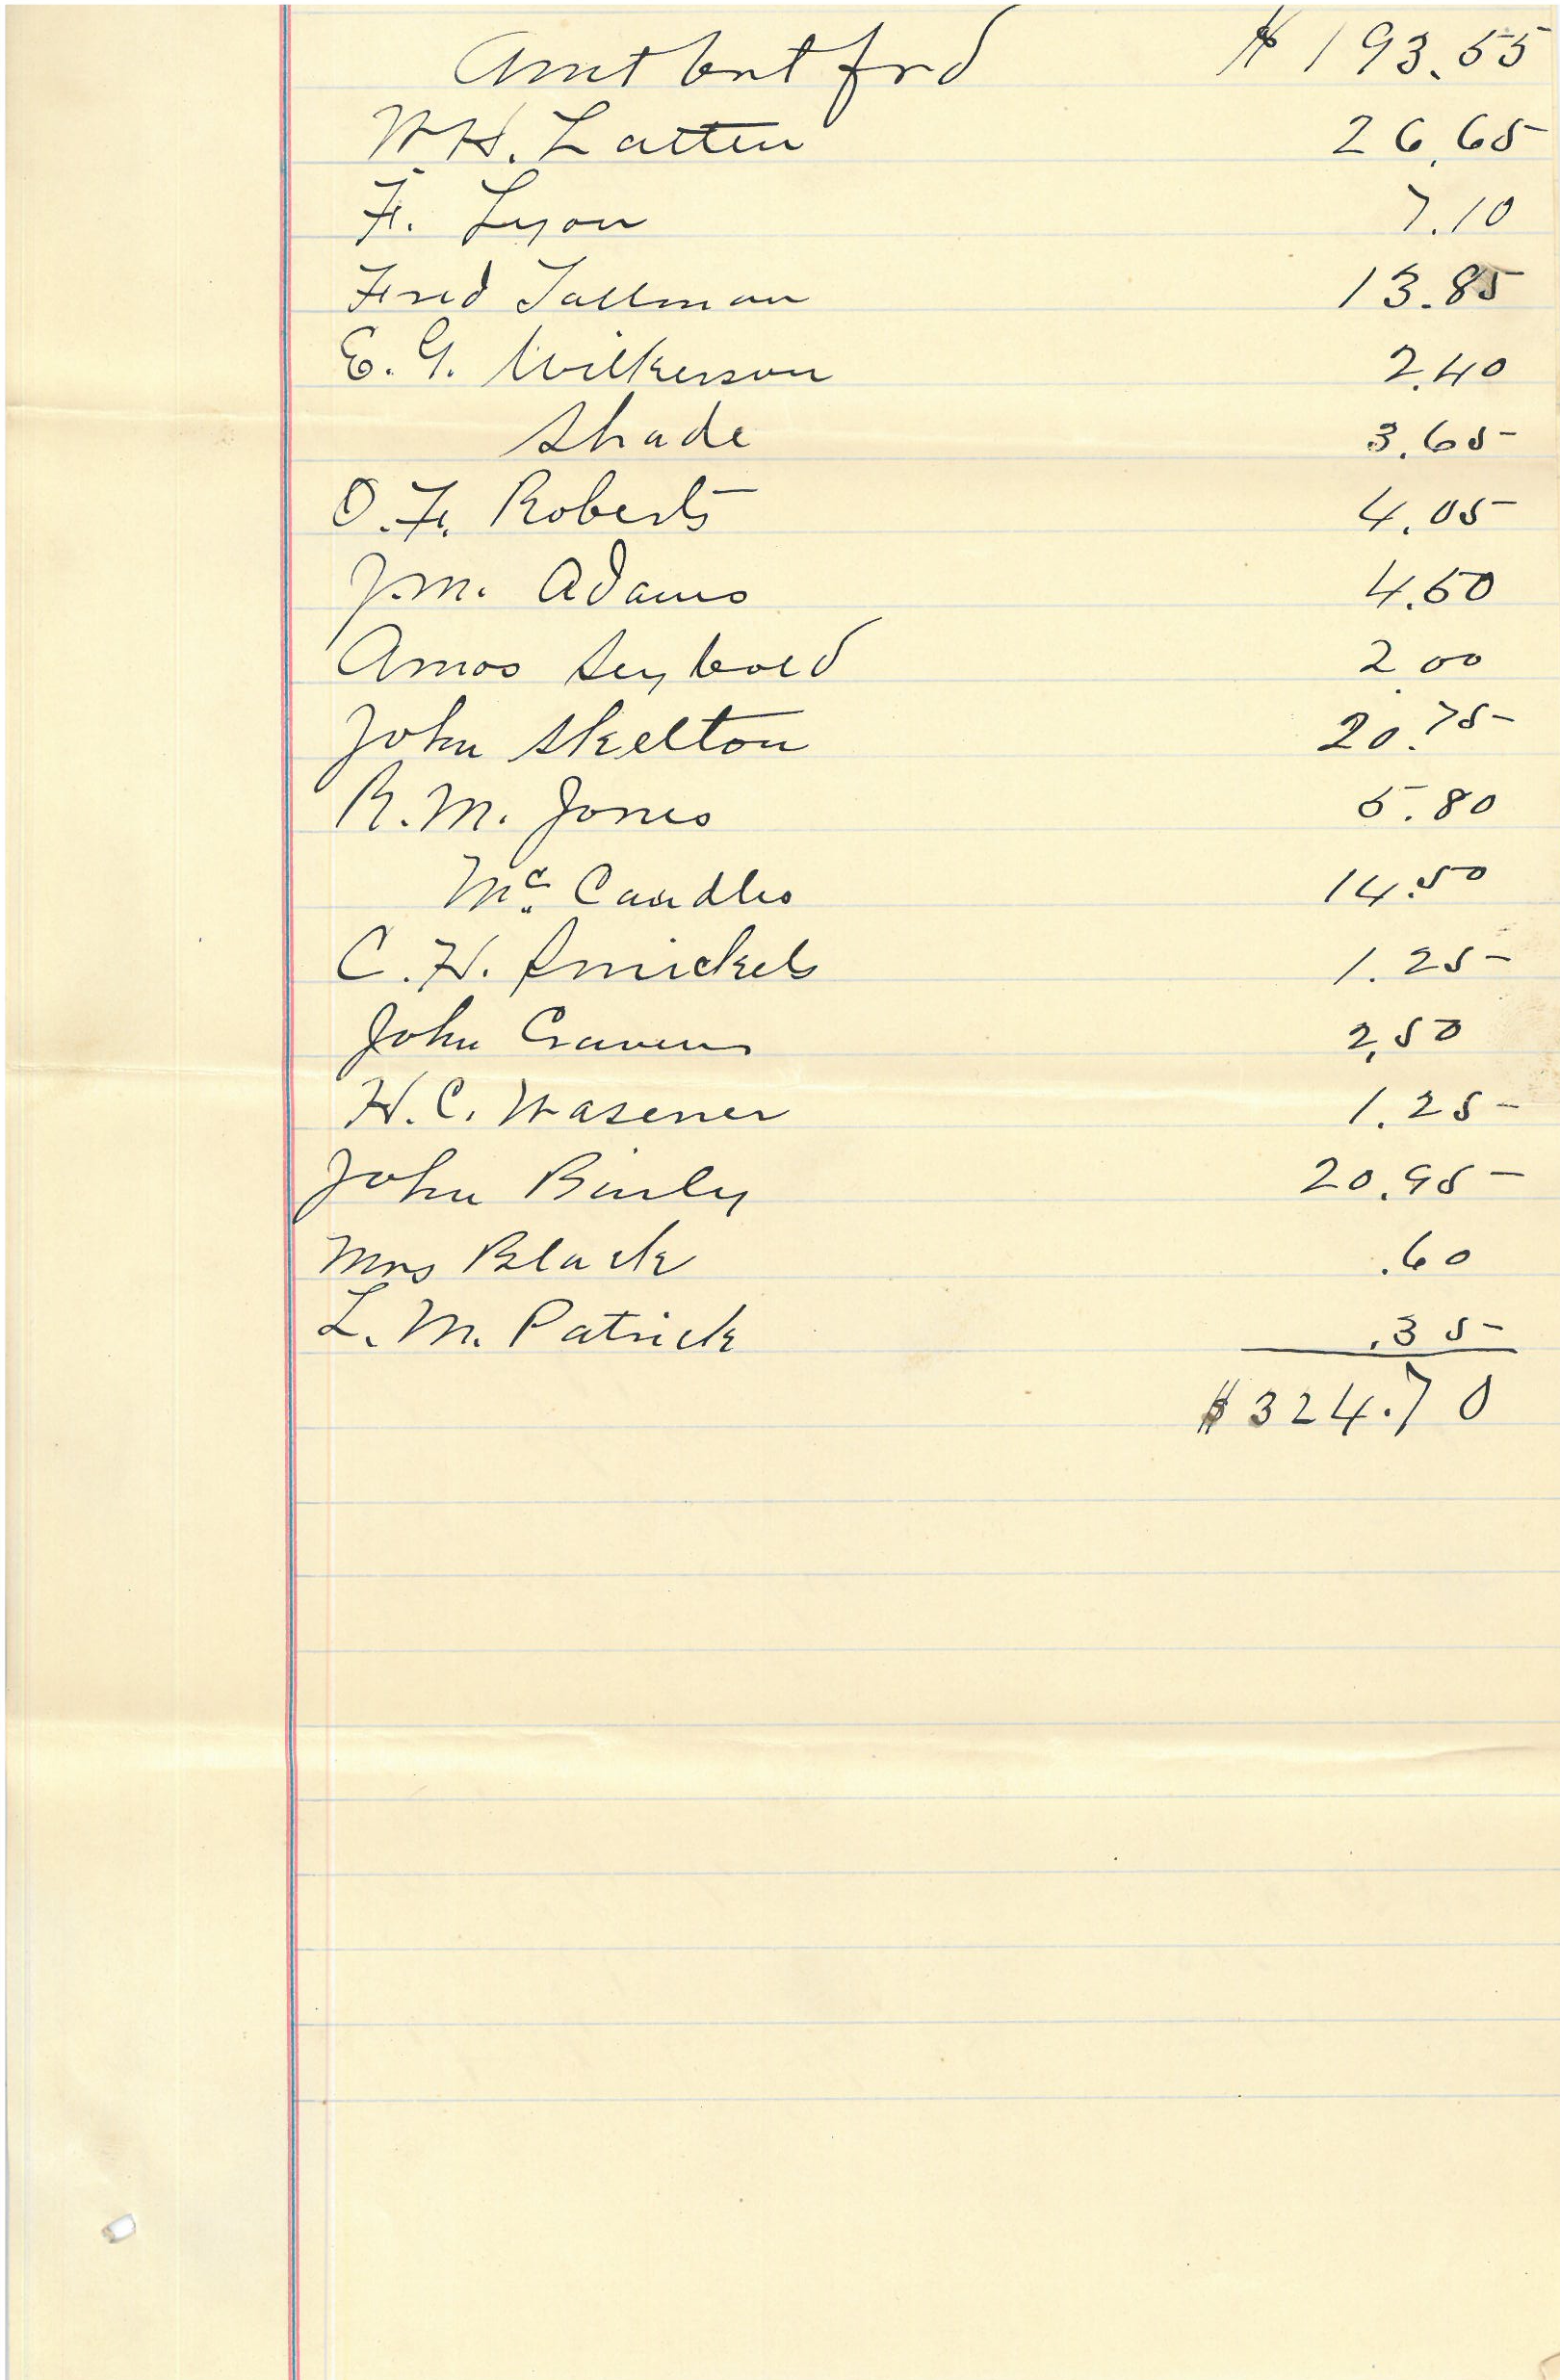 Amt brt frd $193.55
W.H. Latten 26.65
F. Lyon 7.10
Fred Tallman 13.85
E.G. Wilkerson 2.40
Shade 3.65
O.F. Roberts 4.05
J.M. Adams 4.50
Amos Seybold 2.00
John Skelton 20.75
R.M. Jones 5.80
Mc Candles 14.50
C.H. Smickels 1.25
John Cravens 2.50
H.C. Wasener 1.25
John 20.95
Mrs Black .60
L.M. Patrick .35
$324.70